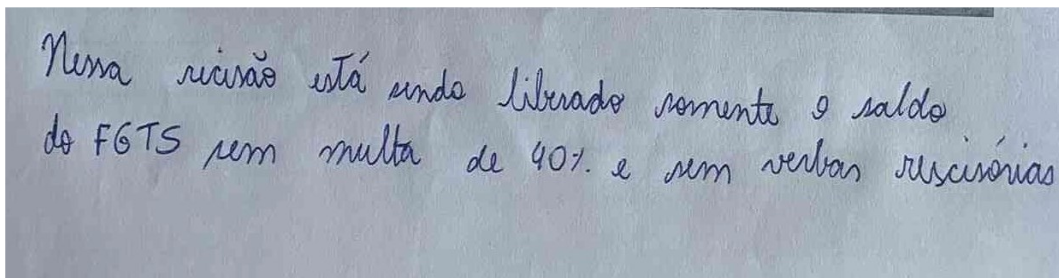 Nessa recisão está sendo liberado somente o saldo
do FGTS sem multa de 40% e sem verbas rescisórias